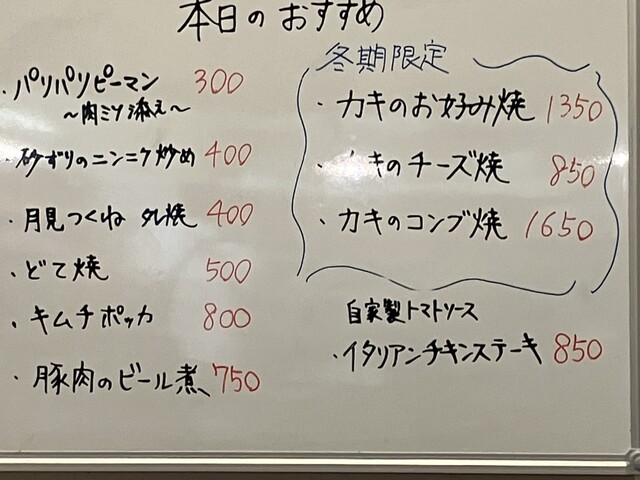 本日のおすすめ
・パリパリピーマン 300
～肉ミソ添え～
・砂ずりのニンニク炒め 400
・月見つくね 焼 400
・どて焼 500
・キムチポッカ 800
・豚肉のビール煮 750
冬期限定
・カキのお好み焼 1350
・キのチーズ焼 850
・カキのコンブ焼 1650
自家製トマトソース
・イタリアンチキンステーキ 850